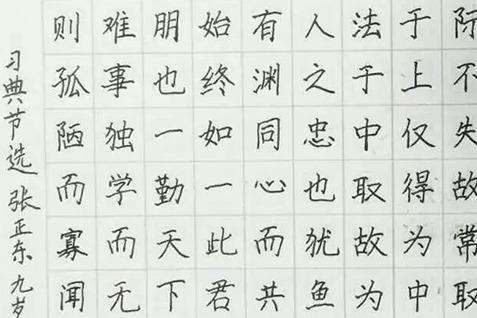 际不失故常取
于上仅得为中
法于中取故为
人之忠也犹鱼
有渊同心而共
始终如一此君
朋也一勤天下
难事独学而无
则孤陋而寡闻
习典节选 张正东 九岁